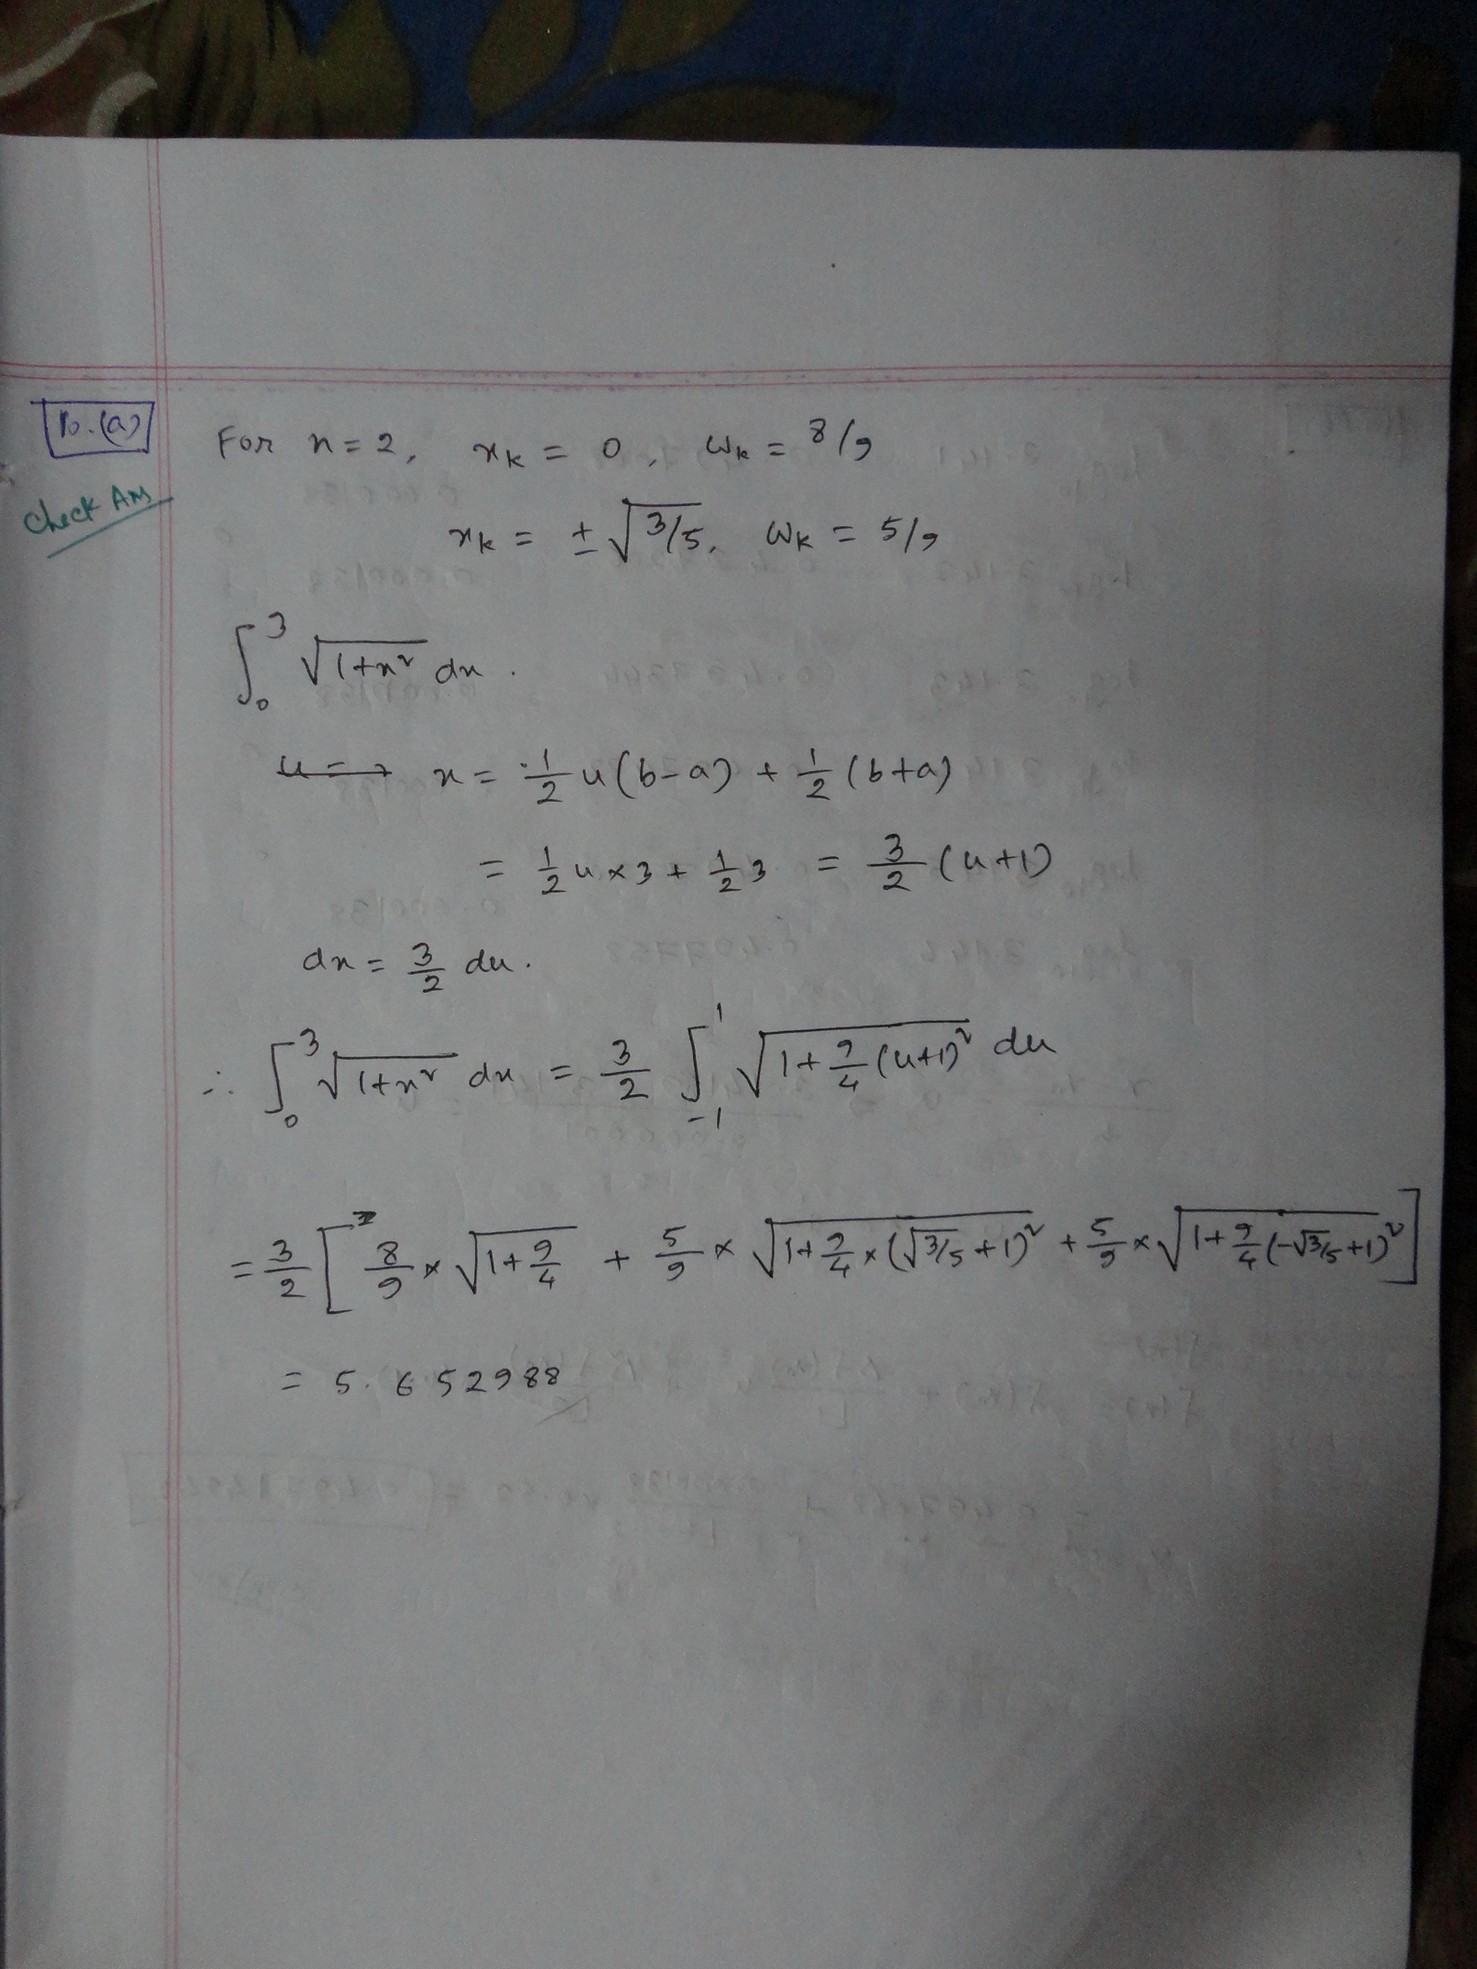 10.(a)
Check Ans
For n = 2, xk = 0, wk = 8/9
xk = ± √3/5, wk = 5/9
∫₀³ √1+x² dx.
x = 1/2 u(b-a) + 1/2 (b+a)
= 1/2 u × 3 + 1/2 3 = 3/2 (u+1)
dx = 3/2 du.
∴ ∫₀³ √1+x² dx = 3/2 ∫₋₁¹ √1+9/4(u+1)² du
= 3/2 [ 8/9 × √1+9/4 + 5/9 × √1+9/4×(√3/5+1)² + 5/9 × √1+9/4(-√3/5+1)² ]
= 5.652988